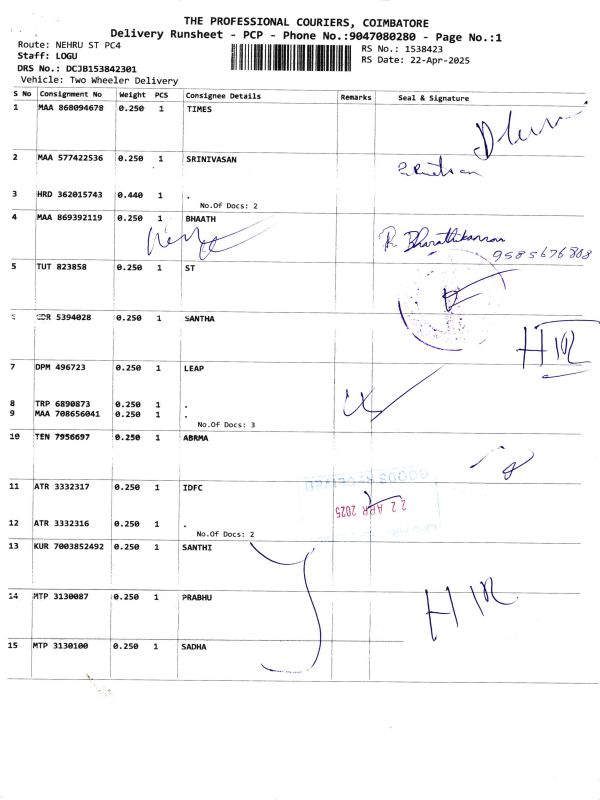 THE PROFESSIONAL COURIERS, COIMBATORE
Delivery Runsheet - PCP - Phone No.:9047080280 - Page No.:1
Route: NEHRU ST PC4
RS No.: 1538423
Staff: LOGU
RS Date: 22-Apr-2025
DRS No.: DCJB153842301
Vehicle: Two Wheeler Delivery
S No Consignment No Weight PCS Consignee Details Remarks Seal & Signature
1 MAA 868094678 0.250 1 TIMES
2 MAA 577422536 0.250 1 SRINIVASAN
3 HRD 362015743 0.440 1 .
No.Of Docs: 2
4 MAA 869392119 0.250 1 BHAATH
R Bharathikannan
9585676888
5 TUT 823858 0.250 1 ST
5394028 0.250 1 SANTHA
7 DPM 496723 0.250 1 LEAP
8 TRP 6890873 0.250 1 .
9 MAA 708656041 0.250 1 .
No.Of Docs: 3
10 TEN 7956697 0.250 1 ABRMA
GOODS RECEIVED
11 ATR 3332317 0.250 1 IDFC
22 APR 2025
12 ATR 3332316 0.250 1 .
No.Of Docs: 2
13 KUR 7003852492 0.250 1 SANTHI
14 MTP 3130087 0.250 1 PRABHU
15 MTP 3130100 0.250 1 SADHA